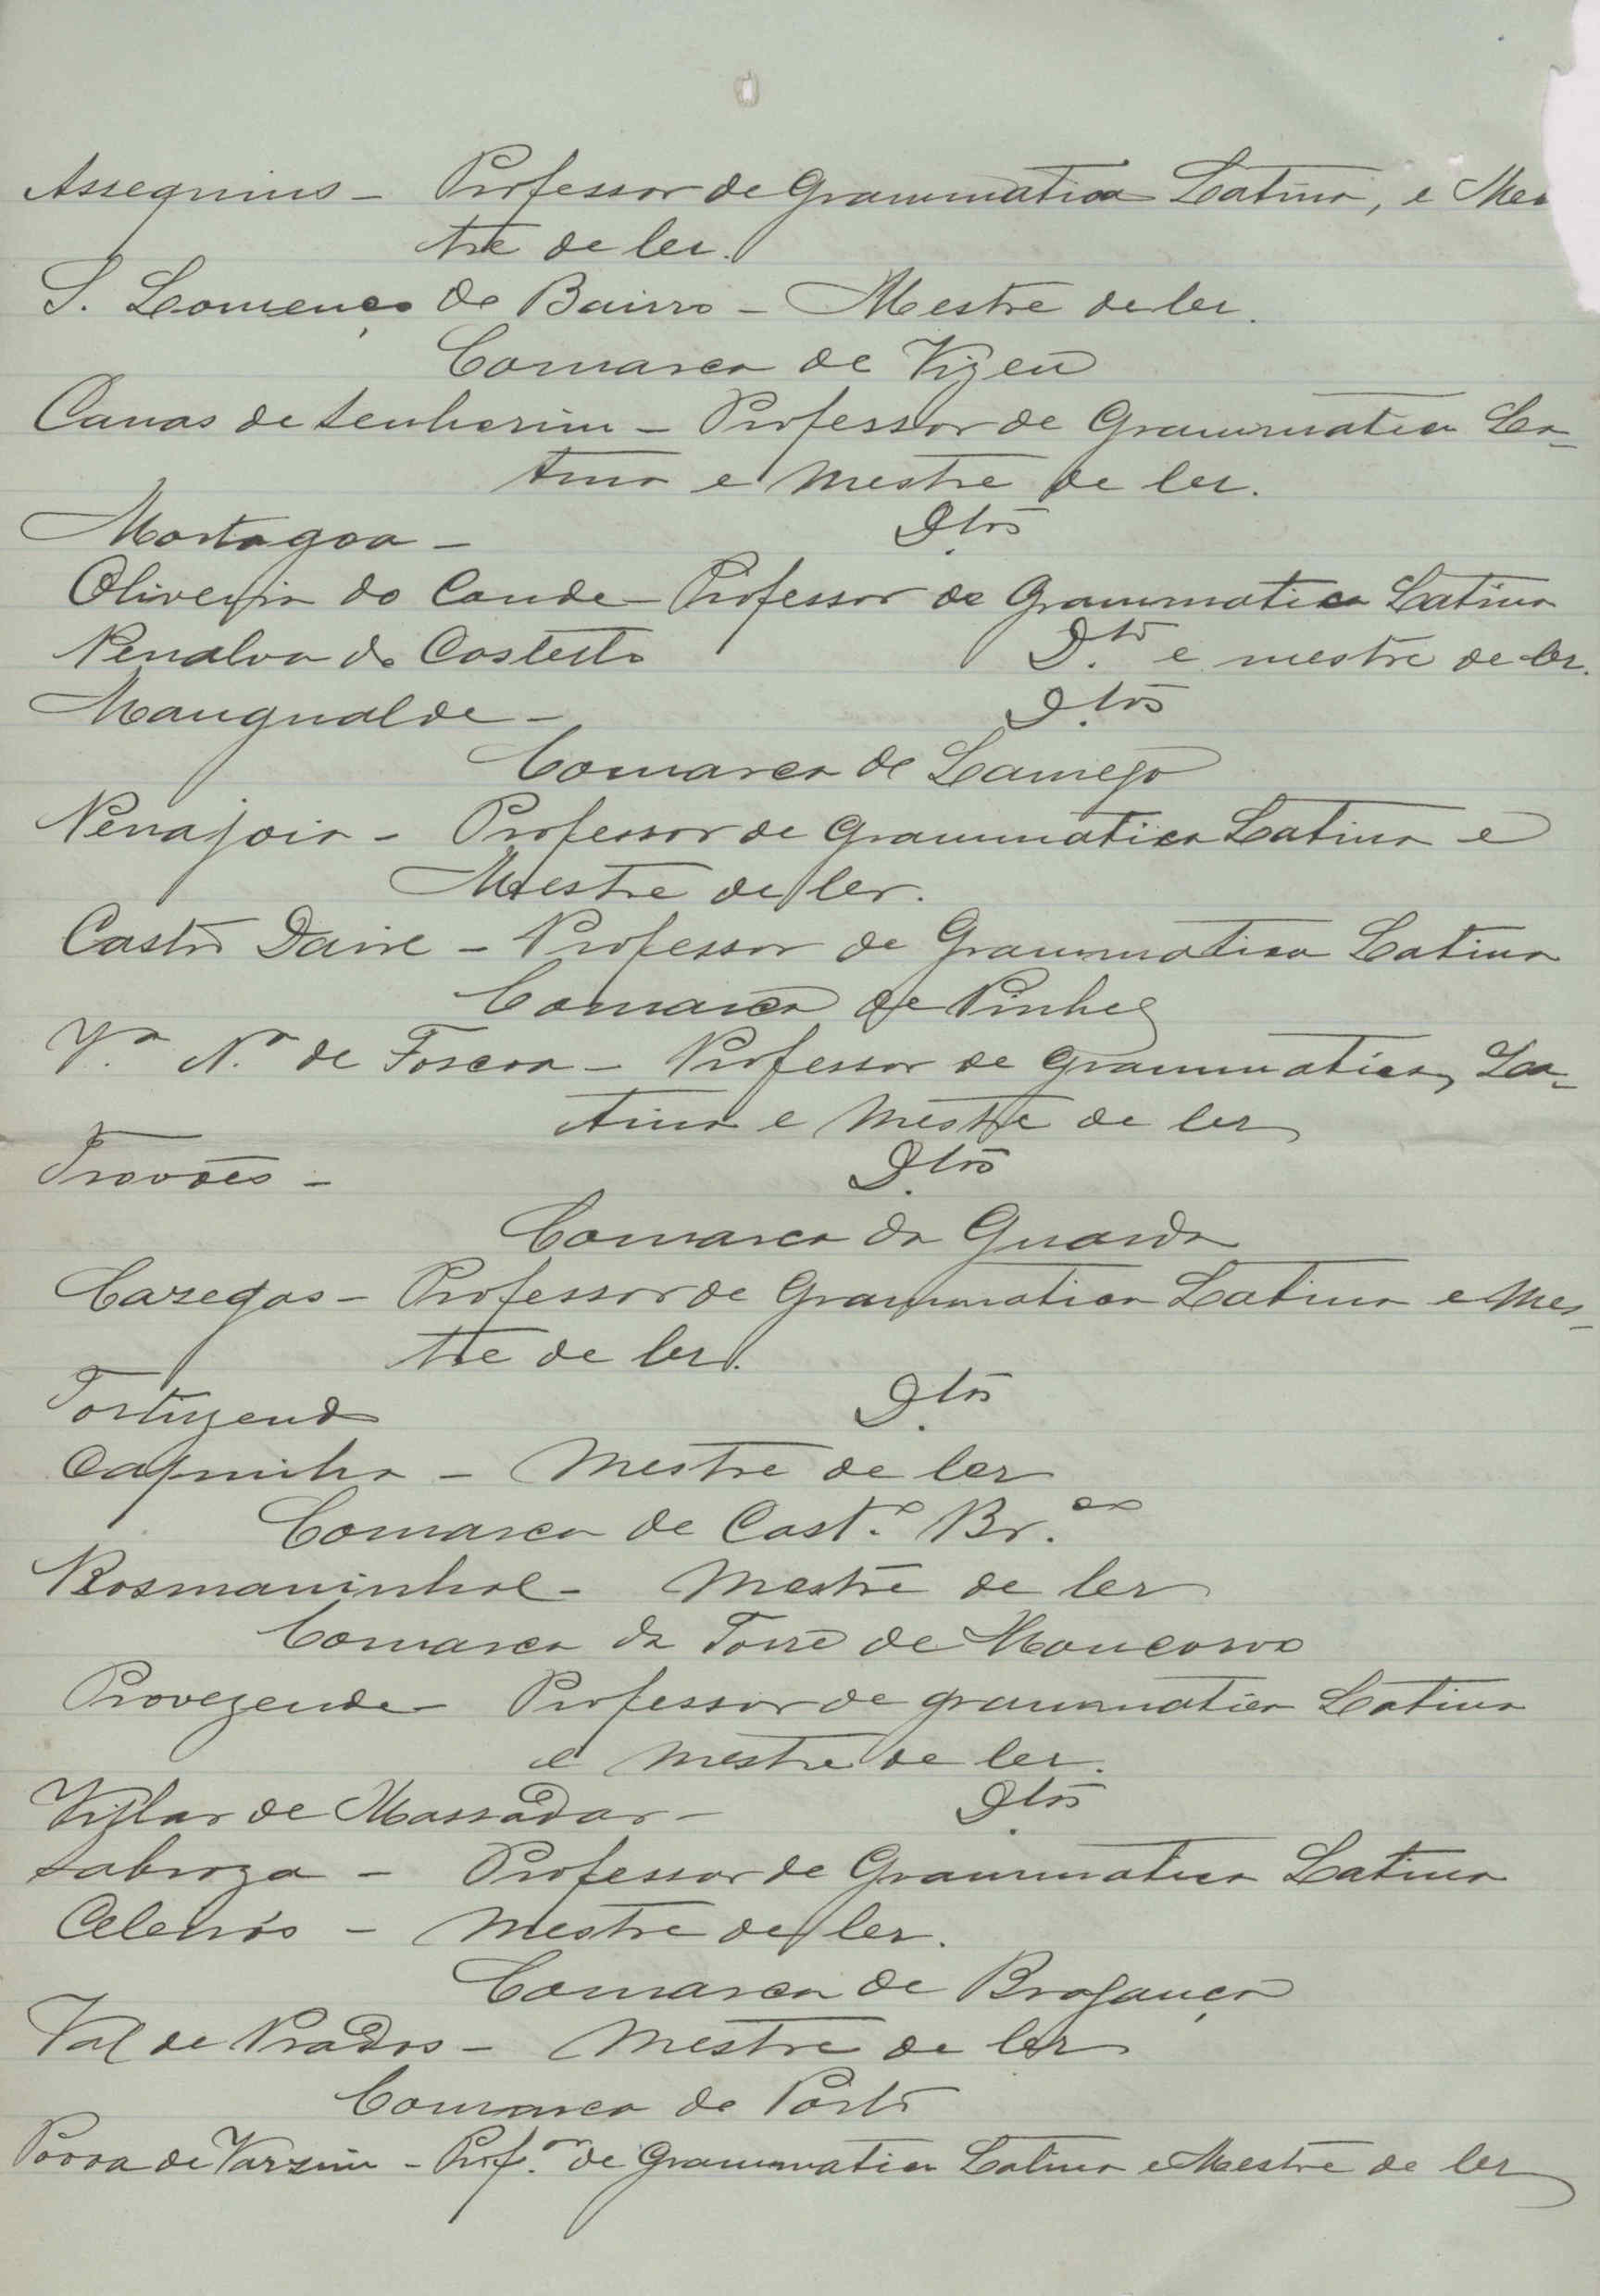 Assequins - Professor de Grammatica Latina, e Mes
tre de ler.
S. Lourenço do Bairro - Mestre de ler.
Comarca de Vizeu
Canas de Senhorim - Professor de Grammatica La-
tina e Mestre de ler.
Mortagoa - D.tos
Oliveira do Conde - Professor de Grammatica Latina
Penalva do Castello D.to e mestre de ler.
Mangualde - D.tos
Comarca de Lamego
Penajoia - Professor de Grammatica Latina e
Mestre de ler.
Castro Daire - Professor de Grammatica Latina
Comarca de Pinhel
V.a N.a de Foscoa - Professor de Grammatica, La-
tina e Mestre de ler
Trovões - D.tos
Comarca da Guarda
Cazegas - Professor de Grammatica Latina e Mes-
tre de ler.
Tortuzendo D.tos
Capinha - Mestre de ler
Comarca de Cast.o Br.co
Rosmaninhal - Mestre de ler
Comarca da Torre de Moncorvo
Provezende - Professor de grammatica Latina
e Mestre de ler.
Villar de Massada - D.tos
Sabroza - Professor de Grammatica Latina
Celeirós - Mestre de ler.
Comarca de Bragança
Val de Prados - Mestre de ler
Comarca do Porto
Povoa de Varzim - Prof.or de Grammatica Latina e Mestre de ler